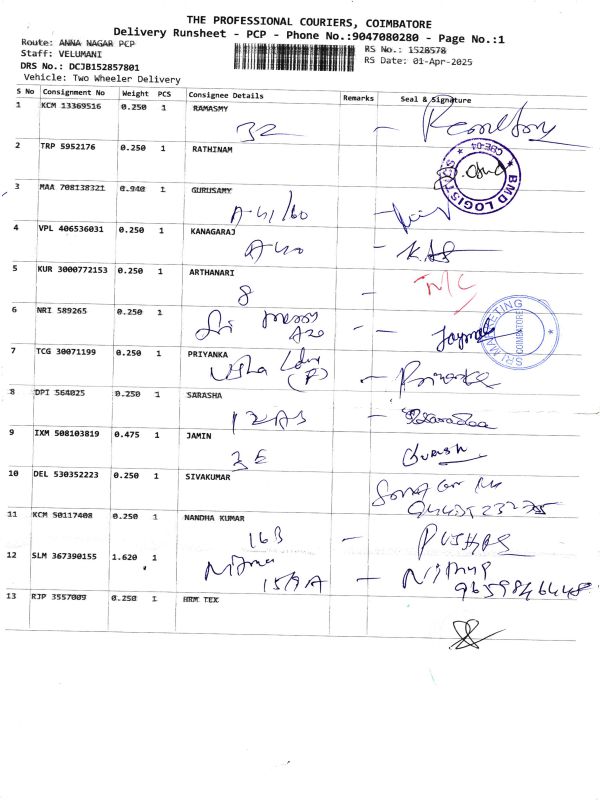 THE PROFESSIONAL COURIERS, COIMBATORE
Delivery Runsheet - PCP - Phone No.:9047080280 - Page No.:1
Route: ANNA NAGAR PCP
RS No.: 1528578
Staff: VELUMANI
RS Date: 01-Apr-2025
DRS No.: DCJB152857801
Vehicle: Two Wheeler Delivery
S No Consignment No Weight PCS Consignee Details Remarks Seal & Signature
1 KCM 13369516 0.250 1 RAMASMY
32 -
2 TRP 5952176 0.250 1 RATHINAM
CBE-04
BMD LOGISTICS
3 MAA 708138321 0.940 1 GURUSAMY
A-41/60 -
4 VPL 406536031 0.250 1 KANAGARAJ
A-40 -
5 KUR 3000772153 0.250 1 ARTHANARI
8 -
6 NRI 589265 0.250 1
Sri
A20 -
SRI MARKETING
COIMBATORE
7 TCG 30071199 0.250 1 PRIYANKA
(P) - Priyanka
8 DPI 564025 0.250 1 SARASHA
12 A3 -
9 IXM 508103819 0.475 1 JAMIN
3E
10 DEL 530352223 0.250 1 SIVAKUMAR
11 KCM 50117408 0.250 1 NANDHA KUMAR
16B - PUSHPA
12 SLM 367390155 1.620 1
15/9A - Nithya
9659846648
13 RJP 3557009 0.250 1 HRM TEX